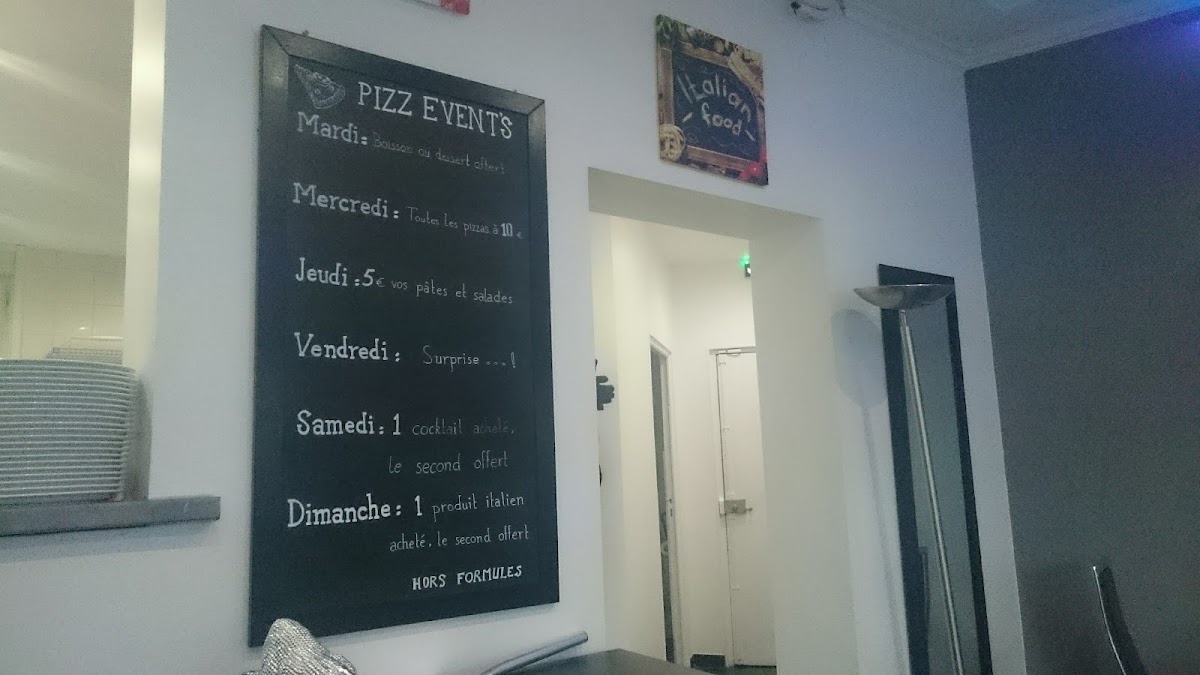 PIZZ EVENT'S
Mardi: Boisson ou dessert offert
Mercredi: Toutes les pizzas à 10 €
Jeudi: 5€ vos pâtes et salades
Vendredi: Surprise ...!
Samedi: 1 cocktail acheté,
le second offert
Dimanche: 1 produit italien
acheté, le second offert
HORS FORMULES
Italian
food